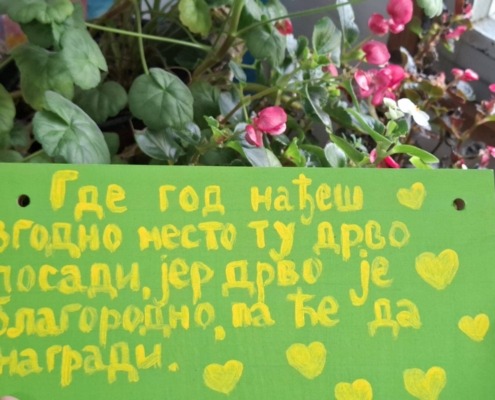 Где год нађеш
згодно место ту дрво
посади, јер дрво је
благородно, па ће да
награди.